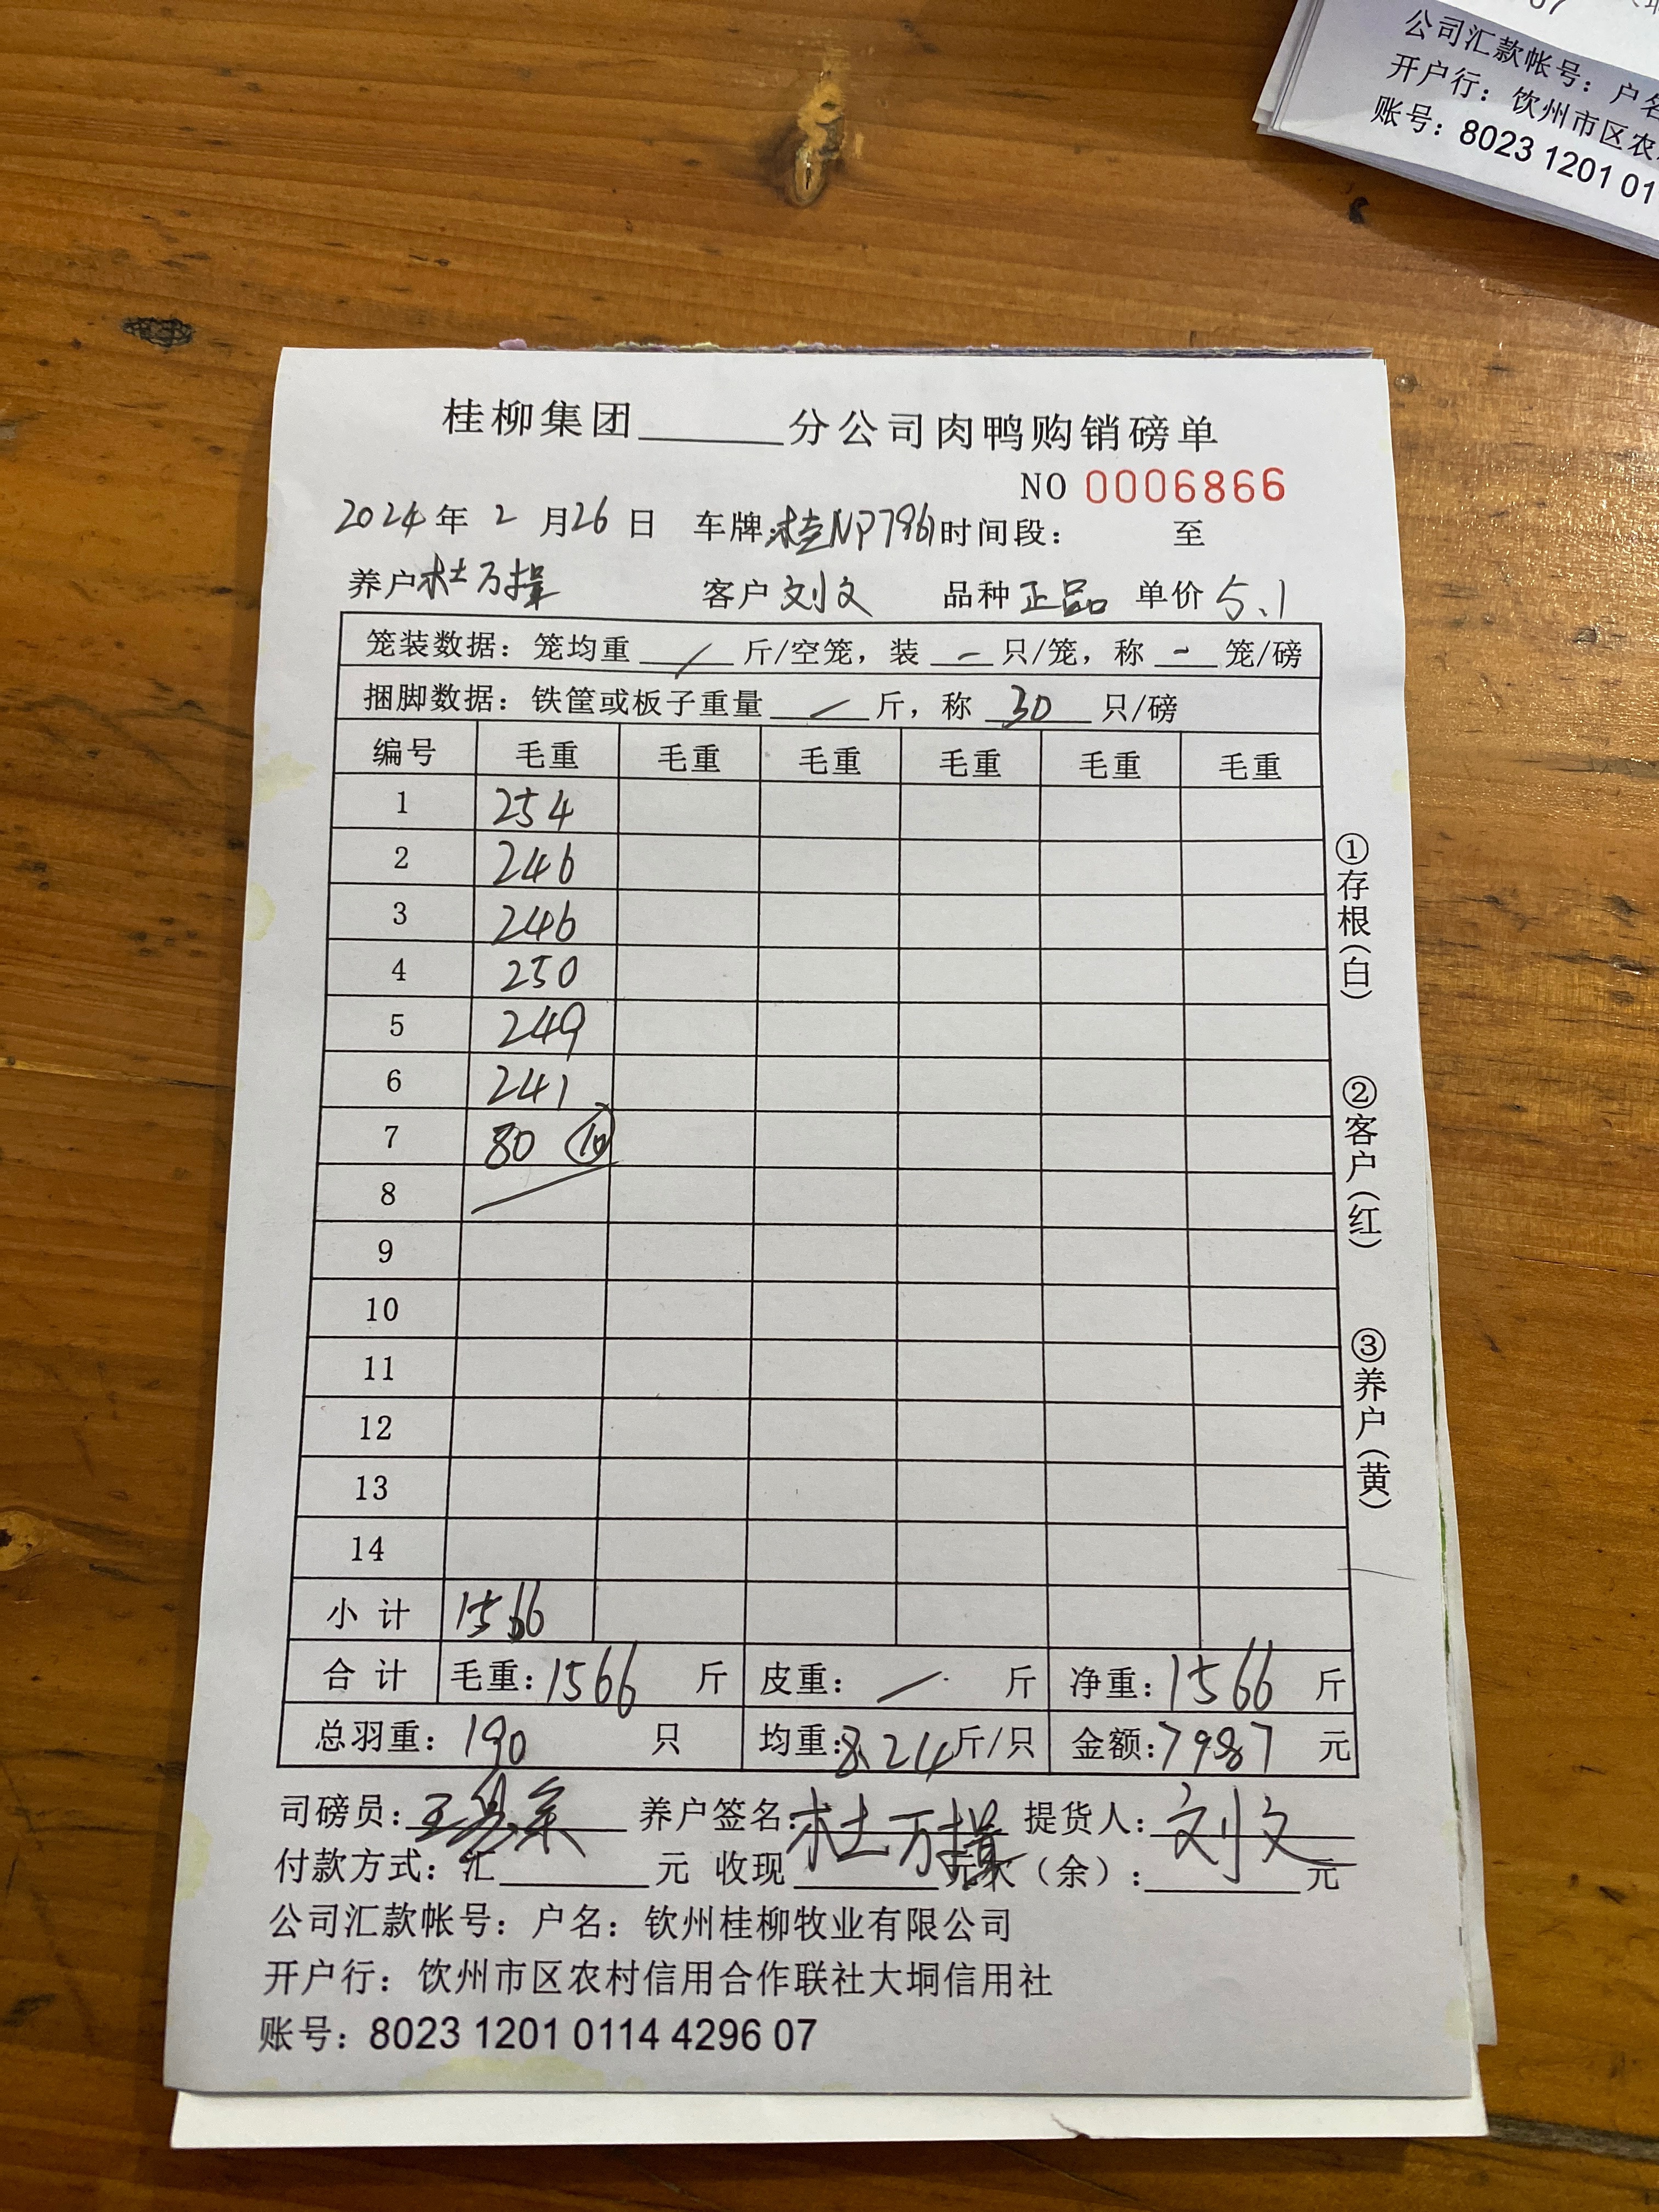 公司汇款帐号：户名
开户行：钦州市区农
账号：8023 1201 01
桂柳集团______分公司肉鸭购销磅单
NO 0006866
2024年 2 月26 日 车牌:桂NP7961时间段： 至
养户杜万 客户刘文 品种 正品 单价 5.1
笼装数据：笼均重 / 斤/空笼，装 - 只/笼，称 - 笼/磅
捆脚数据：铁筐或板子重量 / 斤，称 30 只/磅
编号 毛重 毛重 毛重 毛重 毛重 毛重
1 254
2 246
3 246
4 250
5 249
6 241
7 80 ⑩
8
9
10
11
12
13
14
小计 1566
合计 毛重：1566 斤 皮重： / 斤 净重：1566 斤
总羽重：190 只 均重:8.24斤/只 金额:7987 元
司磅员: 养户签名:杜万 提货人：刘文
付款方式：汇______元 收现______元欠（余）:______元
公司汇款帐号：户名：钦州桂柳牧业有限公司
开户行：饮州市区农村信用合作联社大垌信用社
账号：8023 1201 0114 4296 07
①存根(白)
②客户(红)
③养户(黄)